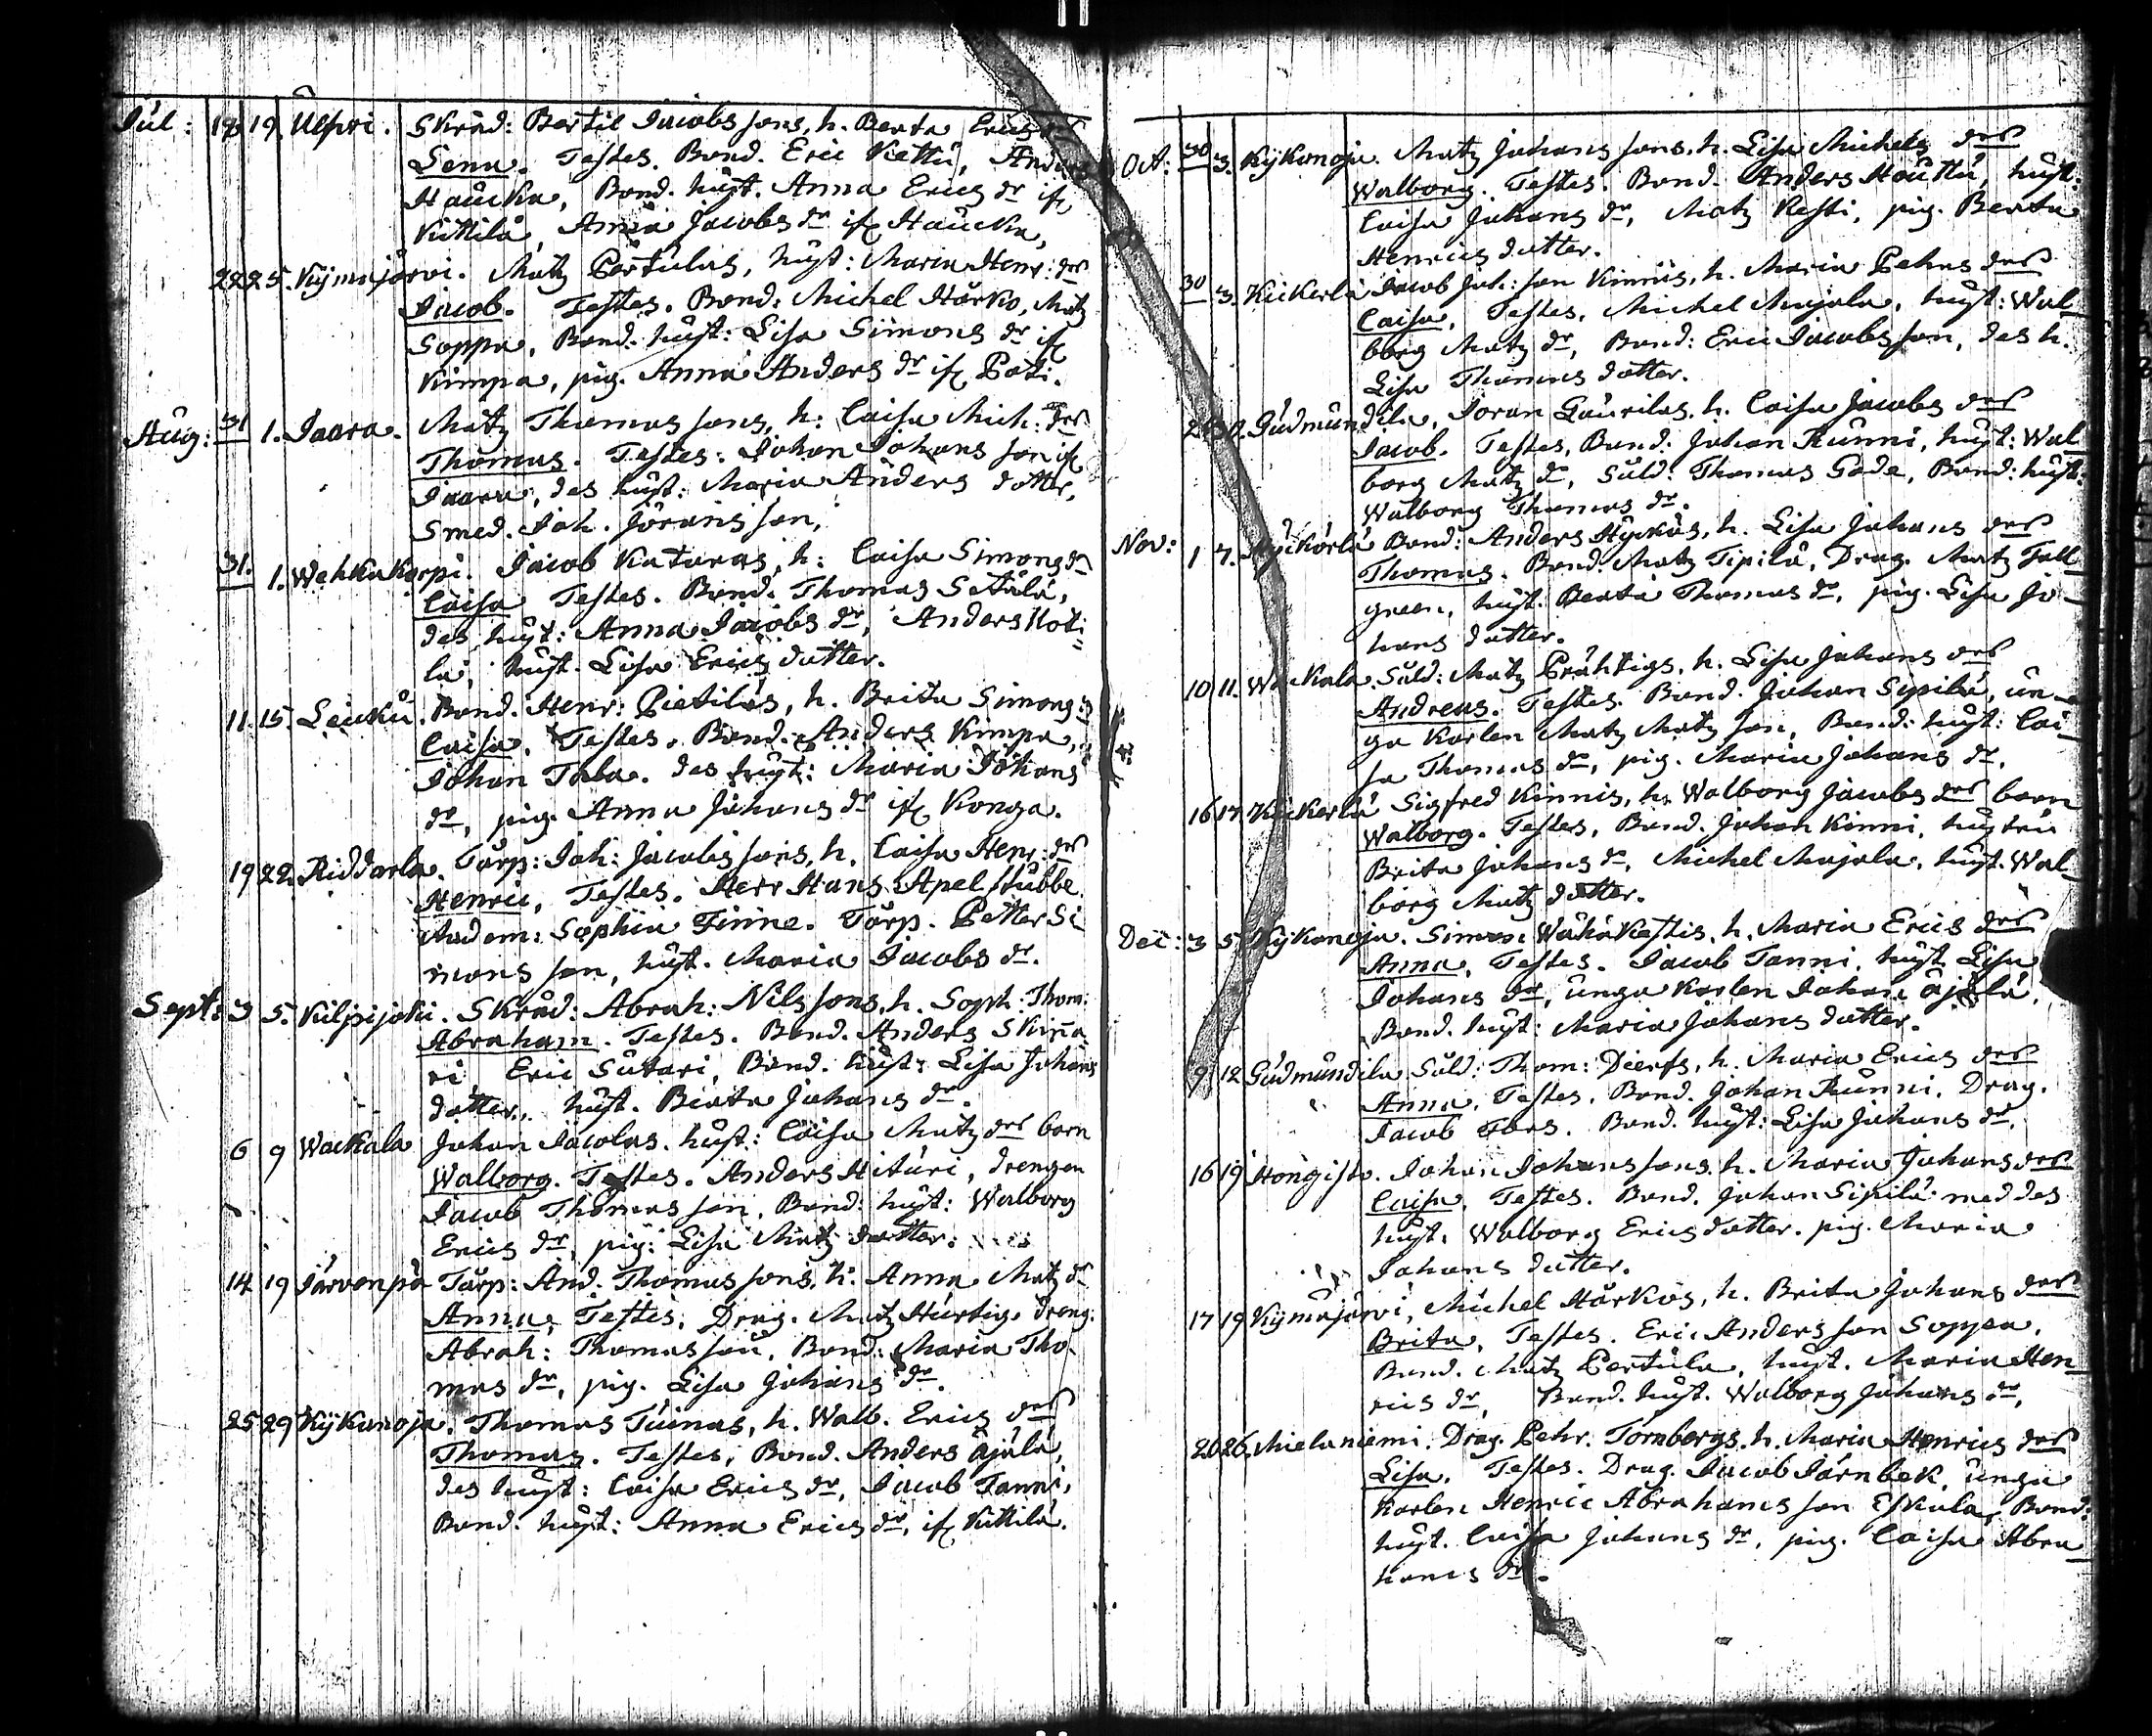 Jul: 18 19. Ulpori. Skräd: Bertil Jacobs sons, h. Beata Erics dr
Lena. Testes. Bond. Eric Kettu, Anders
Haucka, Bond. hust. Anna Erics dr if
Kittilä, Anna Jacobs dr if Haucka,
22 25. Kymäjärvi. Matz Pertulas, hust: Maria Henr: dr
Jacob. Testes. Bond: Michel Härkö, Matz
Soppa, Bond. hust: Lisa Simons dr if
Kimpa, pig. Anna Anders dr if Poti.
Aug: 31 1. Jaara. Matz Thomas sons, h: Caisa Mich: dr
Thomas. Testes: Johan Johans son if
Jaara, des hust: Maria Anders dotter,
Smed. Joh. Jörans son,
31. 1. Wehkakorpi. Jacob Kataras, h: Caisa Simons dr
Caisa Testes. Bond. Thomas Setälä,
des hust: Anna Jacobs dr, Anders Koti=
la, hust. Lisa Erics dotter.
11. 15. Leuku. Bond. Henr: Pietiläs, h. Brita Simons
Caisa. Testes. Bond. Anders Kimpa,
Johan Tala. des hust: Maria Johans
dr, pig. Anna Johans dr if Konga.
19 22. Riddarla. Torp: Joh: Jacobs sons, h. Caisa Henr: dr
Henric, Testes. Herr Hans Apelstubbe
Madem: Sophia Finne. Torp. Petter Si
mons son, hust. Maria Jacobs dr.
Sept: 3 5. Kilpijoki. Skräd: Abrah: Nils sons, h. Soph: Thom:
Abraham. Testes. Bond. Anders Skinna
ri Eric Sutari, Bond. hust: Lisa Johans
dotter, hust. Beata Johans dr.
6 9 Wackala Johan Jacolas. hust: Caisa Matz dr barn
Walborg. Testes. Anders Hituri, drengen
Jacob Thomas son, Bond: hust: Walborg
Erics dr, pig: Lisa Matz dotter.
14 19 Järvenpä Torp: And. Thomas sons, h. Anna Matz dr
Anna, Testes, Drag. Matz Hurtig, dreng.
Abrah: Thomas son, Bond: Maria Tho-
mas dr, pig. Lisa Johans dr.
25 29 Kykänoja. Thomas Tuinas, h. Walb. Erics dr
Thomas. Testes, Bond. Anders Äjälä,
des hust: Caisa Erics dr, Jacob Tanni,
Bond: hust: Anna Erics dr, if Kittilä.
Oct: 30 3. Kykänoja. Matz Johans sons, h. Lisa Michels dr
Walborg. Testes. Bond. Anders Houttu, hust:
Caisa Johans dr, Matz Kesti, pig. Beata
Henrics dotter.
30 3. Kickerlä Jacob Joh: son Kinnis, h. Maria Pehrs dr
Caisa, Testes, Michel Majala, hust: Wal-
borg Matz dr, Bond: Eric Jacobs son, des h.
Lisa Thomas dotter.
Gudmundila, Joran Laurilas, h. Caisa Jacobs dr
Jacob. Testes, Bond: Johan Runni, hust: Wal
borg Matz dr, Sold: Thomas Gode, Bond: hust.
Walborg Thomas dr.
Nov: 1 7. Bond: Anders Hyckäs, h. Lisa Johans dr
Thomas. Bond. Matz Tipilä, Drag. Matz Tall
green, hust: Beata Thomas dr, pig. Lisa Jo-
hans dotter.
10 11. Wackala. Sold: Matz Präktigs, h. Lisa Johans dr
Andreas. Testes. Bond. Johan Sipilä, un-
ga Karlen Matz Matz son, Bond: hust: Cai-
sa Thomas dr, pig. Maria Johans dr,
16 17 Kickerlä Sigfred Kinnis, h. Walborg Jacobs dr barn
Walborg. Testes, Bond. Johan Kinni, hustru
Brita Johans dr, Michel Majala, hust. Wal-
borg Matz dotter.
Dec: 3 5 Kykänoja. Simon Wähäkestis, h. Maria Erics dr
Anna, Testes. Jacob Tanni, hust Lisa
Johans dr, unga Karlen Johan Äjälä,
Bond. hust: Maria Johans dotter.
9 12 Gudmundila Sold: Thom: Dierfs, h. Maria Erics dr
Anna, Testes. Bond. Johan Runni. Drag.
Jacob Fors. Bond. hust: Lisa Johans dr.
16 19 Hongisto. Johan Johans sons, h. Maria Johans dr
Caisa. Testes. Bond. Johan Sipilä med des
hust. Walborg Erics dotter. pig. Maria
Johans dotter.
17 19 Kymäjärvi, Michel Härkös, h. Brita Johans dr
Brita, Testes. Eric Anders son Soppa,
Bond. Matz Pertula, hust. Maria Hen
rics dr, Bond. hust. Walborg Johans dr,
20 26. Mielaniemi. Drag. Pehr. Tornbergs, h. Maria Henrics dr
Lisa. Testes. Drag. Jacob Järnbek, unga
Karlen Henric Abrahams son Eskola, Bond:
hust. Caisa Johans dr, pig. Caisa Abra
hams dr.